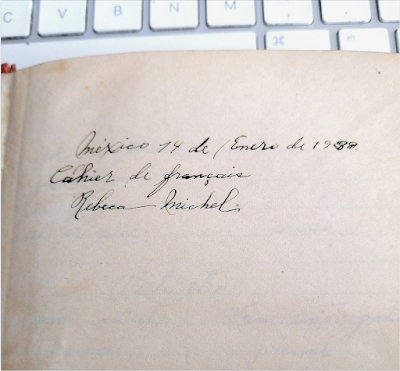 C V B N M
⌘
México 14 de Enero de 1938.
Cahier de français
Rebeca Michel.